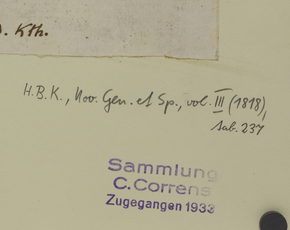 . Kth.
H.B.K., Nov. Gen. et Sp., vol. III (1818),
tab. 237
Sammlung
C. Correns
Zugegangen 1933